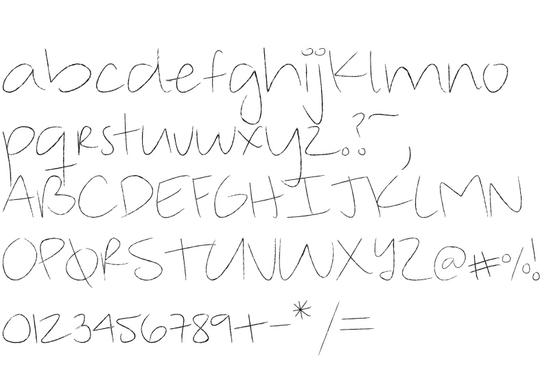 abcdefghijklmno
pqrstuvwxyz.?~,
ABCDEFGHIJKLMN
OPQRSTUVWXYZ@#%!
0123456789+-*/=